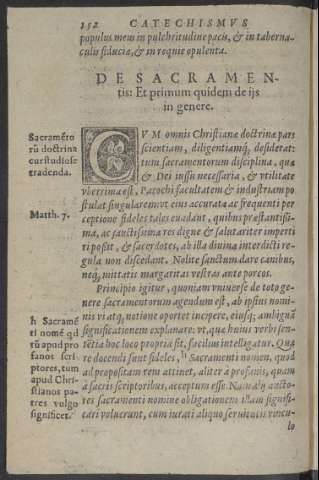 152 CATECHISMVS
populus meus in pulchritudine pacis, & in taberna-
culis fiducia, & in requie opulenta.
DE SACRAMEN-
tis: Et primum quidem de ijs
in genere.
Sacramēto
rū doctrina
cur studiose
tradenda.
Matth. 7.
CVM omnis Christianæ doctrinæ pars
scientiam, diligentiamq́; desiderat:
tum sacramentorum disciplina, quæ
& Dei iussu necessaria, & vtilitate
vberrima est, Parochi facultatem & industriam po
stulat singularem: vt eius accurata ac frequenti per
ceptione fideles tales euadant, quibus præstantissi-
mæ, ac sanctissimæ res digne & salutariter imperti
ri possit, & sacerdotes, ab illa diuina interdicti re-
gula non discedant. Nolite sanctum dare canibus,
neq́; mittatis margaritas vestras ante porcos.
Principio igitur, quoniam vniuerse de toto ge-
nere sacramentorum agendum est, ab ipsius nomi-
nis vi atq́; notione oportet incipere, eiusq́; ambiguā
significationem explanare: vt, quæ huius verbi sen-
tētia hoc loco propria sit, facilius intelligatur. Qua
re docendi sunt fideles, h Sacramenti nomen, quod
ad propositam rem attinet, aliter à profanis, quam
à sacris scriptoribus, acceptum esse. Nam alij aucto-
res sacramenti nomine obligationem illam signifi-
cari voluerunt, cum iurati aliquo seruitutis vincu-
lo
h Sacramē
ti nomē qd
tū apud pro
fanos scri-
ptores, tum
apud Chri-
stianos pa-
tres vulgo
significet.